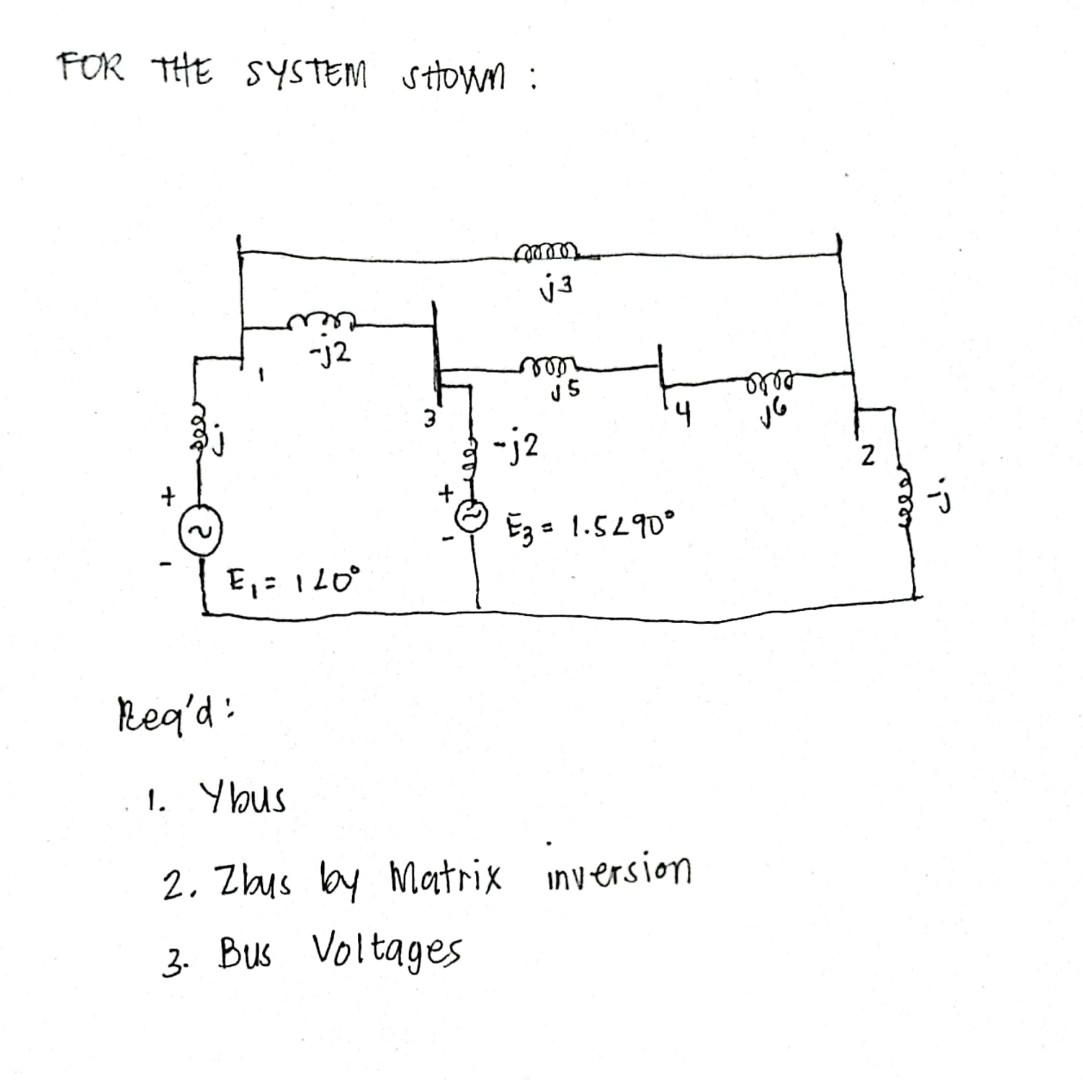 FOR THE SYSTEM SHOWN :
j3
-j2
1
j5
3
4
j6
j
-j2
2
-j
+
+
E₃ = 1.5∠90°
-
-
E₁ = 1∠0°
Req'd :
1. Ybus
2. Zbus by Matrix inversion
3. Bus Voltages